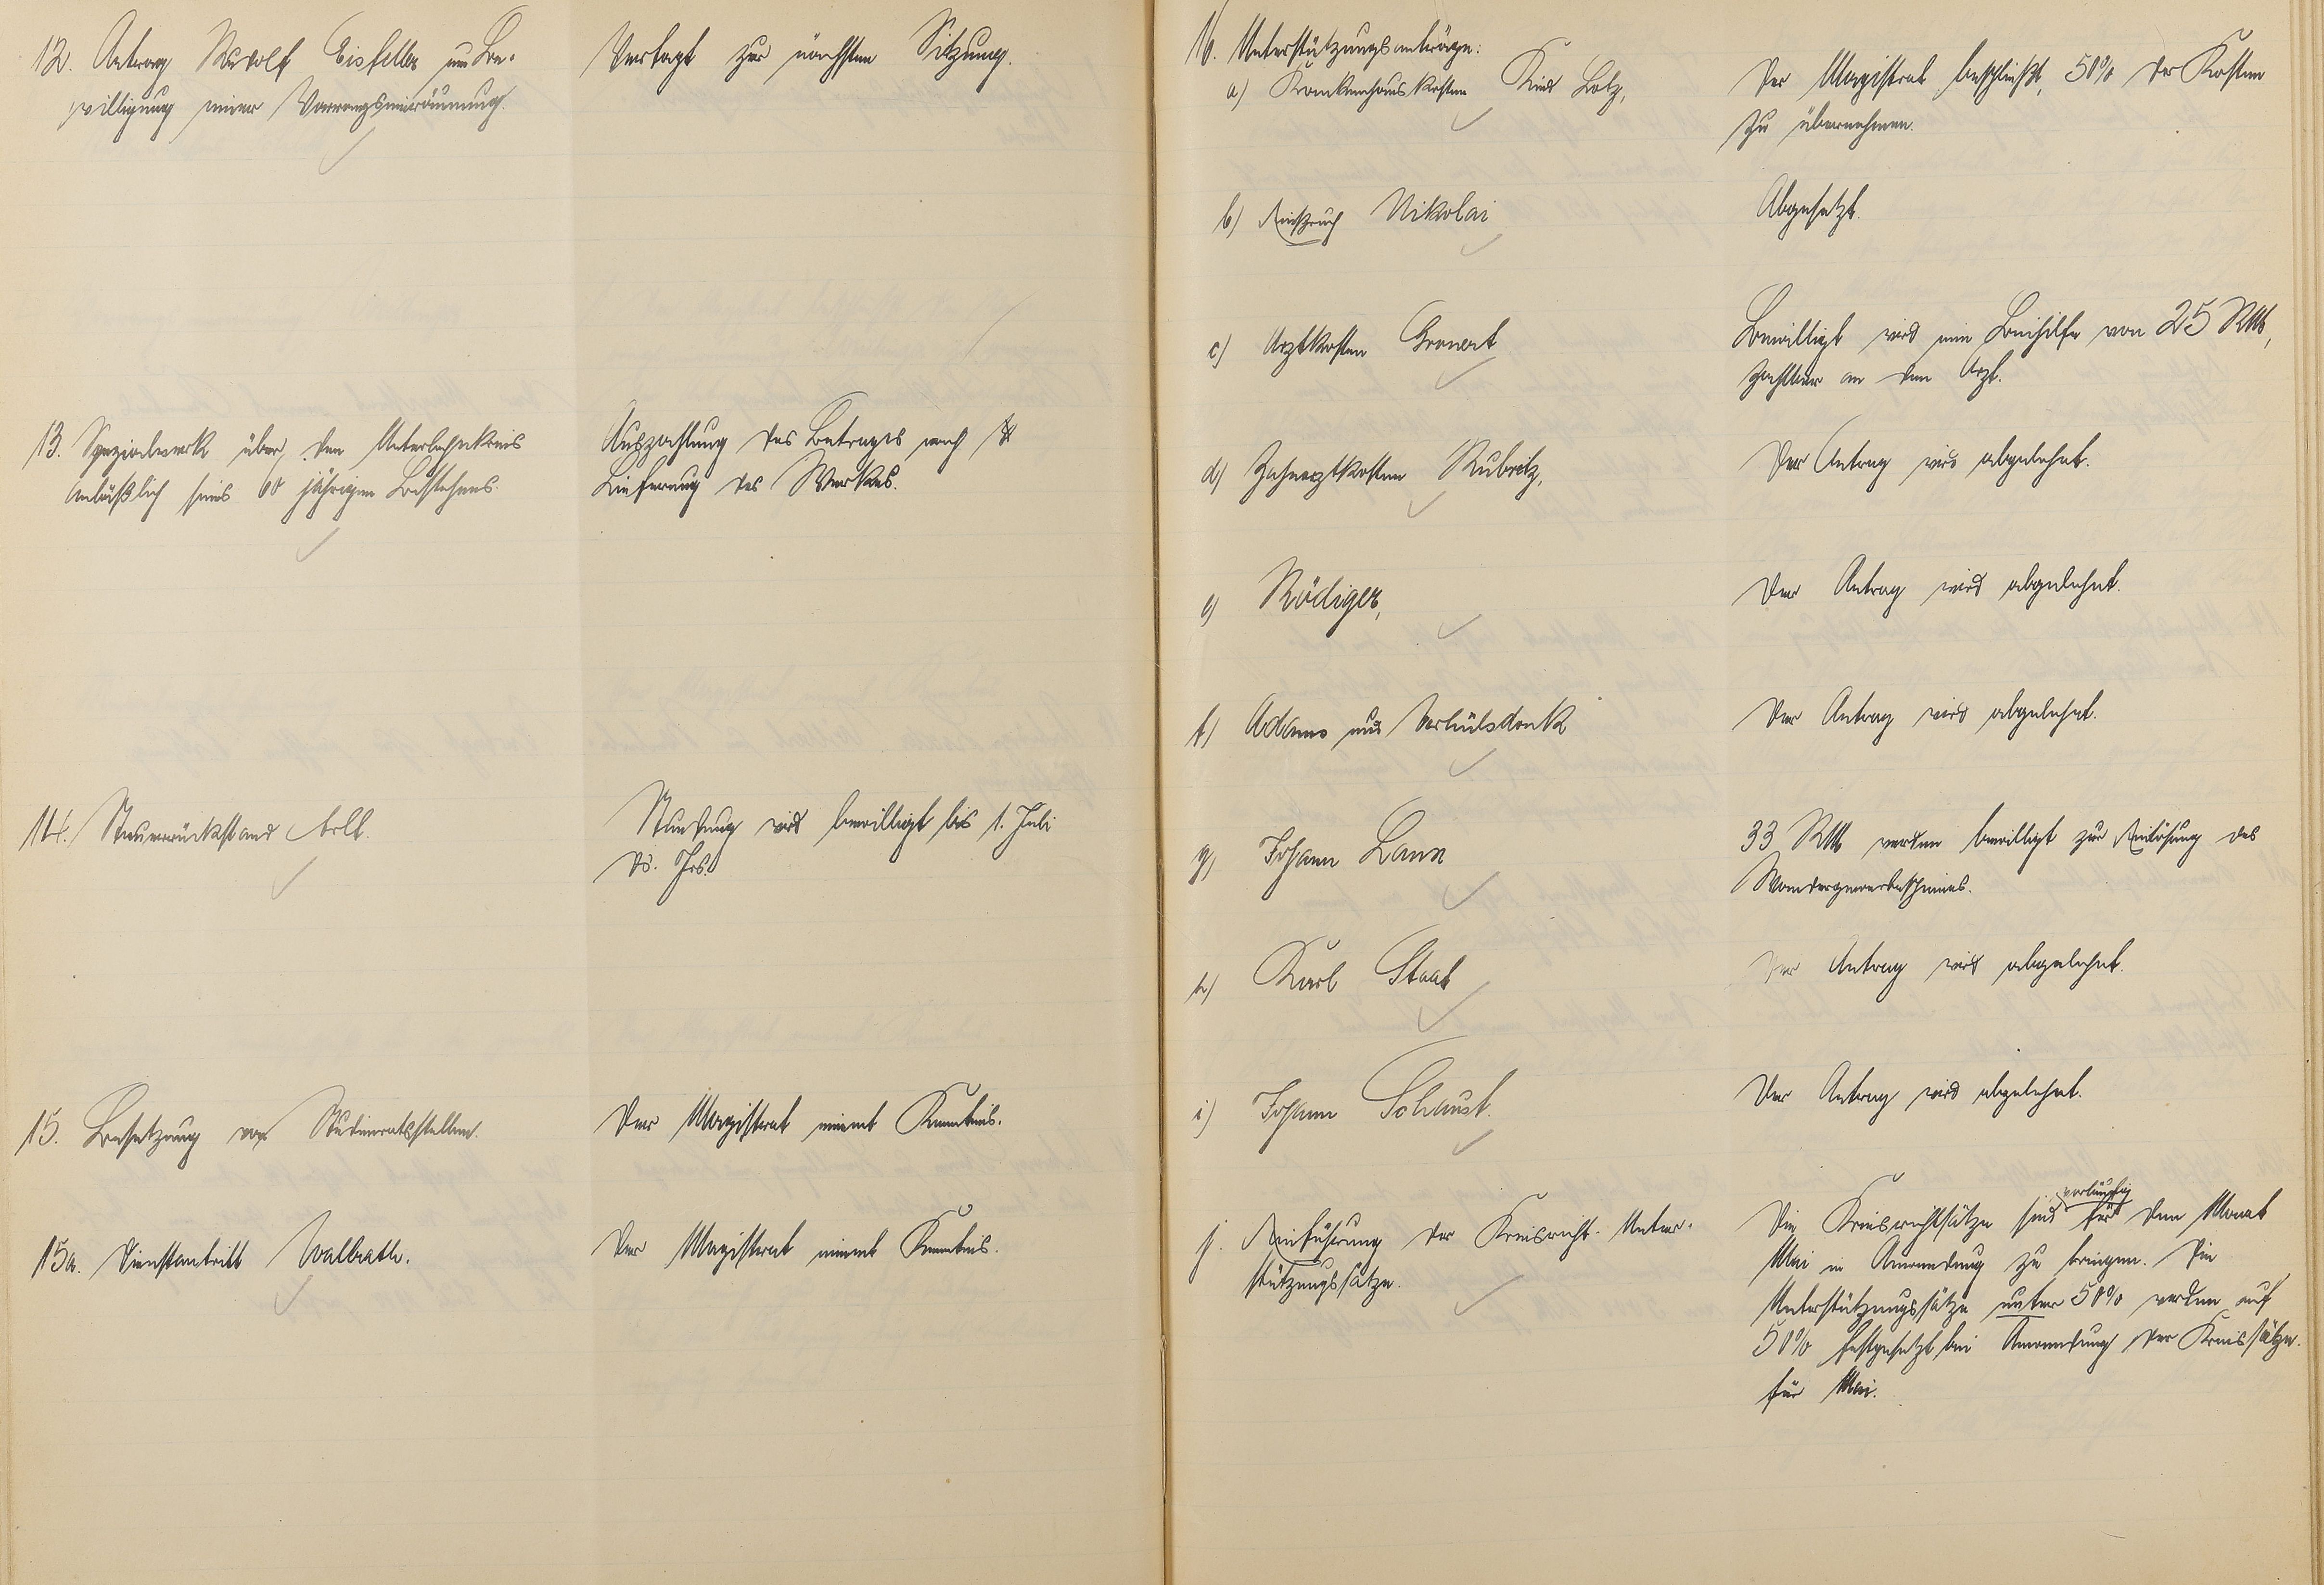 12. Antrag Rudolf Eisfeller um Be-
willigung einer Vorrangseinräumung.
Vertagt zur nächsten Sitzung.
13. Spezialwerk über den Unterlahnkreis
anläßlich seines 60 jährigen Bestehens.
Auszahlung des Betrages nach
Lieferung des Werkes.
14. Steuerrückstand Arlt.
Stundung wird bewilligt bis 1. Juli
ds. Jrs.
15. Besetzung von Studienratsstellen.
Der Magistrat nimmt Kenntnis.
15a. Dienstantritt Walbrath.
Der Magistrat nimmt Kenntnis.
16. Unterstützungsanträge:
a) Krankenhauskosten Kind Lotz,
Der Magistrat beschließt, 50% der Kosten
zu übernehmen.
b) Einspruch Nikolai
Abgesetzt.
c) Arztkosten Gronert
Bewilligt wird eine Beihilfe von 25 RM,
zahlbar an den Arzt.
d) Zahnarztkosten Rubritz,
Der Antrag wird abgelehnt.
e) Rödiger,
Der Antrag wird abgelehnt.
f) Adams und Verhülsdonk
Der Antrag wird abgelehnt.
g) Johann Lann
33 RM werden bewilligt zur Einlösung des
Wandergewerbescheines.
h) Karl Staat
Der Antrag wird abgelehnt.
i) Johann Schaust.
Der Antrag wird abgelehnt.
j. Einführung der Kreisricht-Unter-
stützungssätze.
Die Kreisrichtsätze sind vorläufig für den Monat
Mai in Anwendung zu bringen. Die
Unterstützungssätze unter 50% werden auf
50% festgesetzt bei Anwendung der Kreissätze.
für Mai.